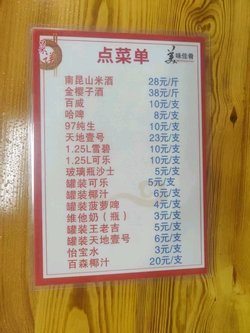 点菜单
美味佳肴
南昆山米酒 28元/斤
金樱子酒 38元/斤
百威 10元/支
哈啤 8元/支
97纯生 10元/支
天地壹号 23元/支
1.25L雪碧 10元/支
1.25L可乐 10元/支
玻璃瓶沙士 5元/支
罐装可乐 5元/支
罐装椰汁 6元/支
罐装菠萝啤 4元/支
维他奶（瓶） 3元/支
罐装王老吉 5元/支
罐装天地壹号 6元/支
怡宝水 3元/支
百森椰汁 20元/支